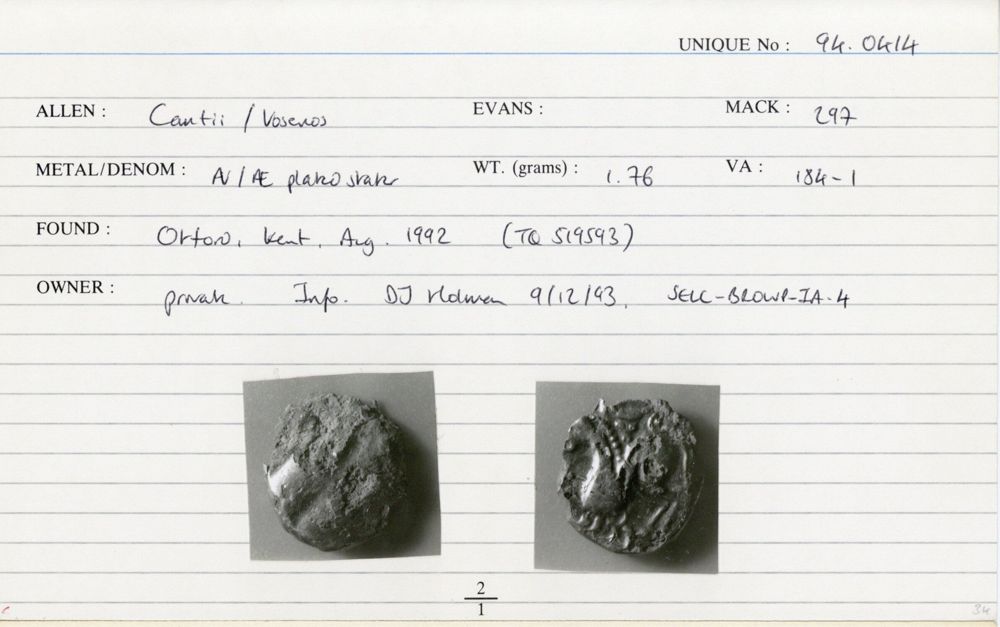 UNIQUE No : 94.0414
ALLEN : Cantii / Vosenos EVANS : MACK : 297
METAL/DENOM : AV/Æ plated stater WT. (grams) : 1.76 VA : 184-1
FOUND : Otford, Kent, Aug. 1992 (TQ 519593)
OWNER : private. Info. DJ Holman 9/12/93. SELC-BROWP-IA-4
2
1
34